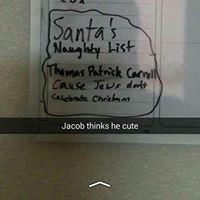 Santa's
Naughty List
Thomas Patrick Carroll
Cause Jews don't
Celebrate Christmas
Jacob thinks he cute